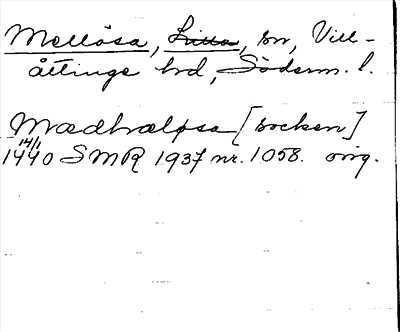 Mellösa, Lilla, sn, Vill-
åttinge hd, Söderm. l.
Mædhaløsa [socken]
14/1
1440 SMR 1937 nr. 1058. orig.